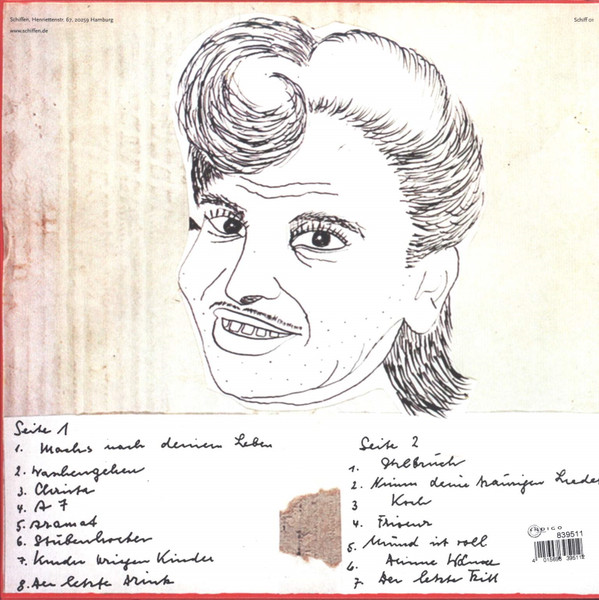 Schiffen, Henriettenstr. 67, 20259 Hamburg
www.schiffen.de
Schiff 01
Seite 1
1. Machs nach deinem Leben
2. Waschengehen
3. Christa
4. A 7
5. Aramat
6. Stubenhocker
7. Kinder kriegen Kinder
8. Der letzte Drink
Seite 2
1.
2. Nimm deine traurigen Lieder
3 Koch
4. Friseur
5. Mund ist voll
6. Dünne Wände
7. Der letzte Tritt
INDIGO
839511